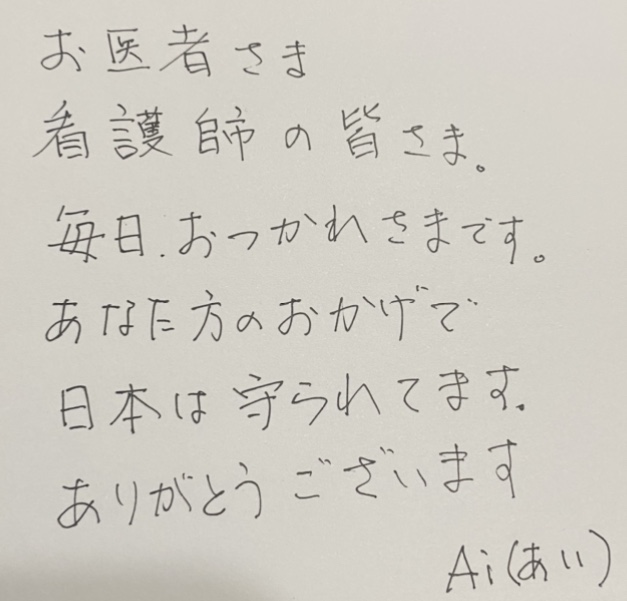 お医者さま
看護師の皆さま。
毎日.おつかれさまです。
あなた方のおかげで
日本は守られてます.
ありがとうございます
Ai(あい)